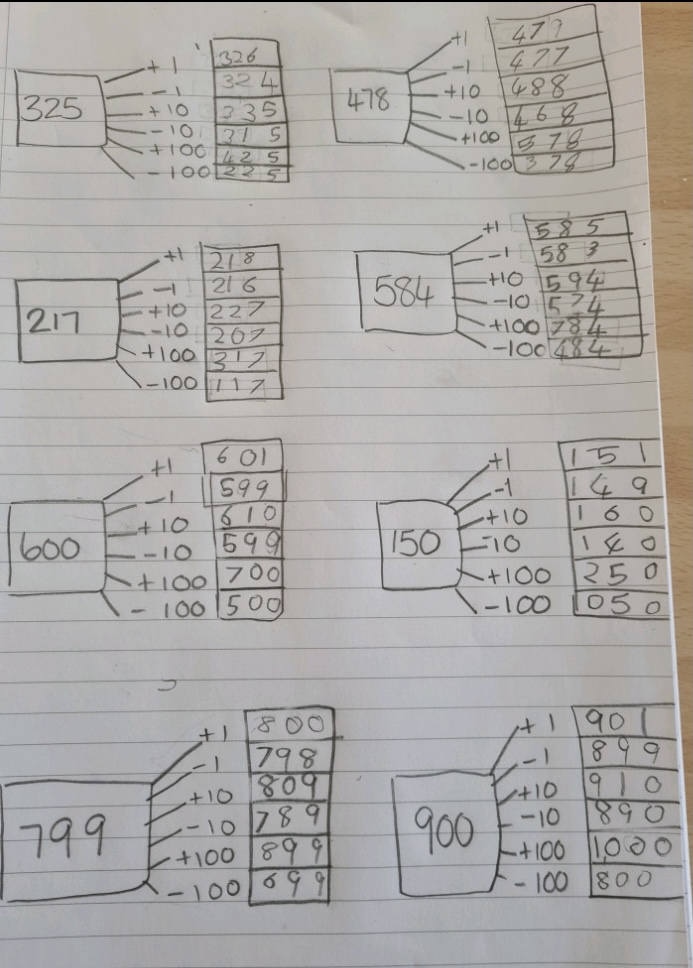 325
+1 326
-1 324
+10 335
-10 315
+100 425
-100 225
478
+1 479
-1 477
+10 488
-10 468
+100 578
-100 378
217
+1 218
-1 216
+10 227
-10 207
+100 317
-100 117
584
+1 585
-1 583
+10 594
-10 574
+100 784
-100 484
600
+1 601
-1 599
+10 610
-10 599
+100 700
-100 500
150
+1 151
-1 149
+10 160
-10 140
+100 250
-100 050
799
+1 800
-1 798
+10 809
-10 789
+100 899
-100 699
900
+1 901
-1 899
+10 910
-10 890
+100 1,000
-100 800